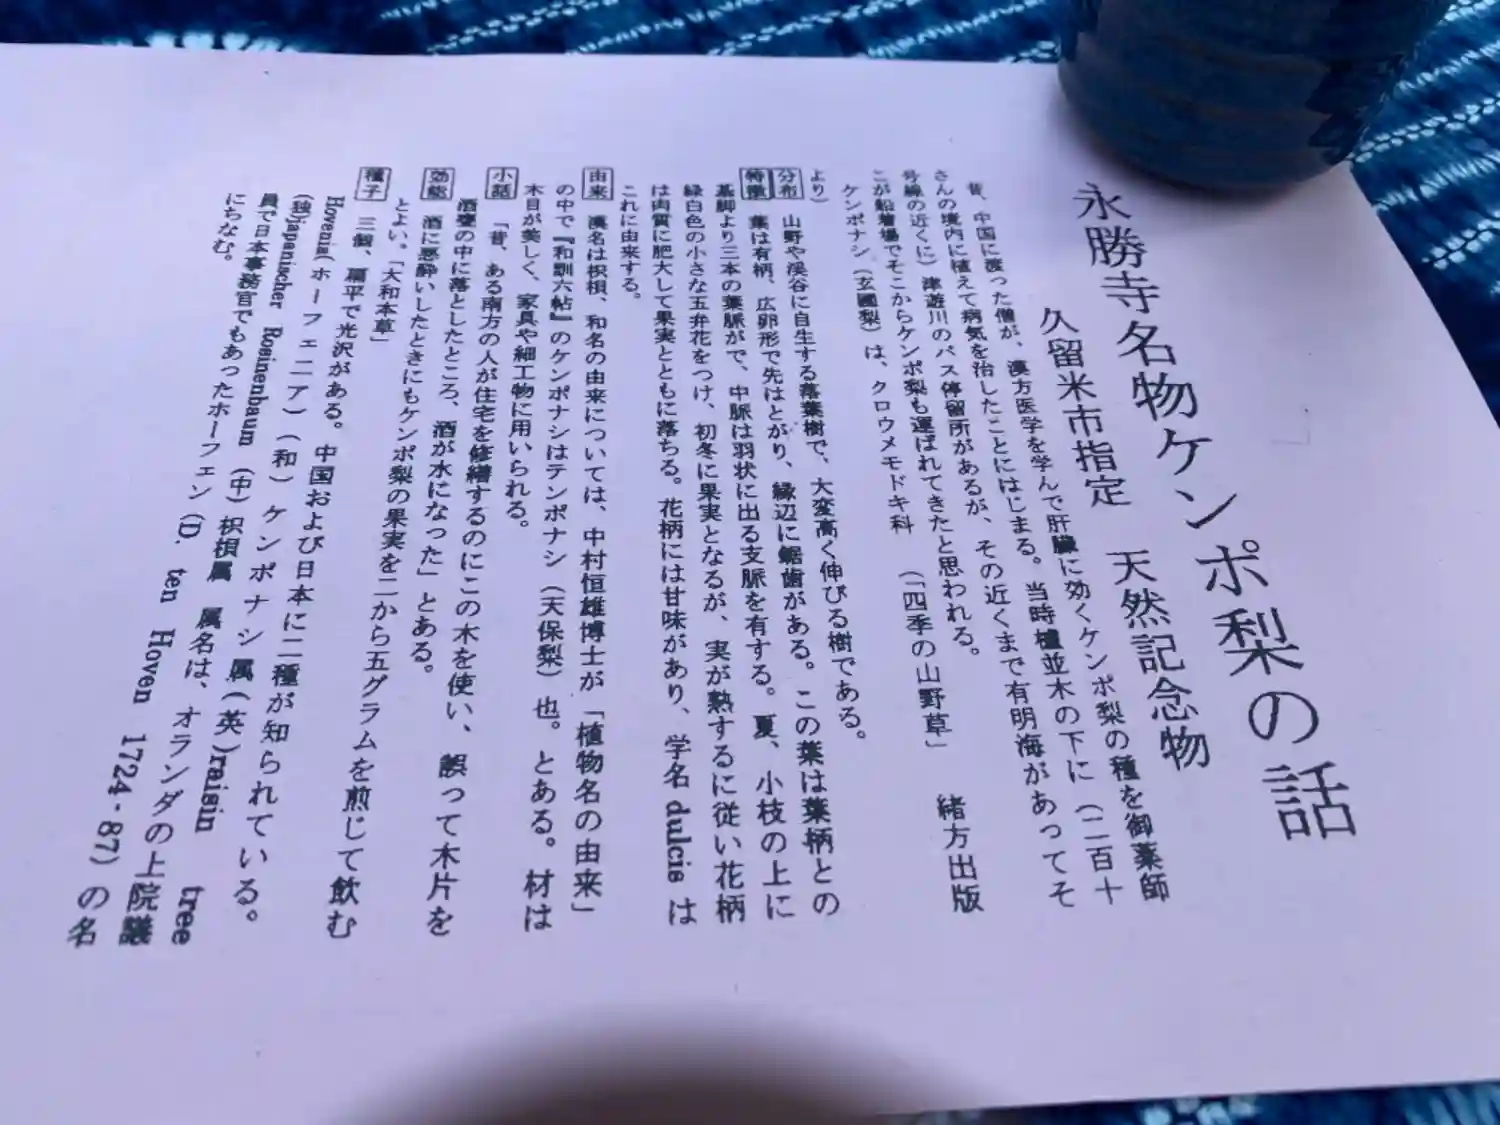 永勝寺名物ケンポ梨の話
久留米市指定 天然記念物
昔、中国に渡った僧が、漢方医学を学んで肝臓に効くケンポ梨の種を御薬師
さんの境内に植えて病気を治したことにはじまる。当時櫨並木の下に(二百十
号線の近くに)津遊川のバス停留所があるが、その近くまで有明海があってそ
こが船着場でそこからケンポ梨も運ばれてきたと思われる。
ケンポナシ(玄圃梨)は、クロウメモドキ科 (「四季の山野草」 緒方出版
より)
分布 山野や渓谷に自生する落葉樹で、大変高く伸びる樹である。
特徴 葉は有柄、広卵形で先はとがり、縁辺に鋸歯がある。この葉は葉柄との
基脚より三本の葉脈がで、中脈は羽状に出る支脈を有する。夏、小枝の上に
緑白色の小さな五弁花をつけ、初冬に果実となるが、実が熟するに従い花柄
は肉質に肥大して果実とともに落ちる。花柄には甘味があり、学名 dulcis は
これに由来する。
由来 漢名は枳椇、和名の由来については、中村恒雄博士が「植物名の由来」
の中で『和訓六帖』のケンポナシはテンポナシ(天保梨)也。とある。材は
木目が美しく、家具や細工物に用いられる。
小話 「昔、ある南方の人が住宅を修繕するのにこの木を使い、誤って木片を
酒甕の中に落としたところ、酒が水になった」とある。
効能 酒に悪酔いしたときにもケンポ梨の果実を二から五グラムを煎じて飲む
とよい。「大和本草」
種子 三個、扁平で光沢がある。中国および日本に二種が知られている。
Hovenia(ホーフェニア)(和)ケンポナシ属(英)raisin tree
(独)japanischer Rosinenbaum (中)枳椇属 属名は、オランダの上院議
員で日本事務官でもあったホーフェン(D. ten Hoven 1724-87)の名
にちなむ。